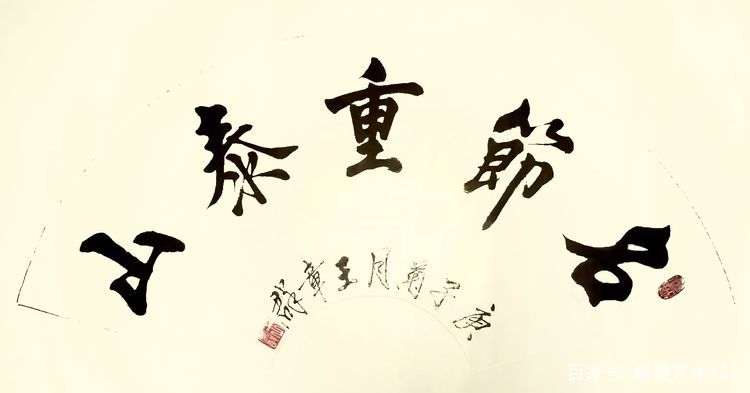 名節重泰山
庚子菊月王章
百家号/墨艺术123